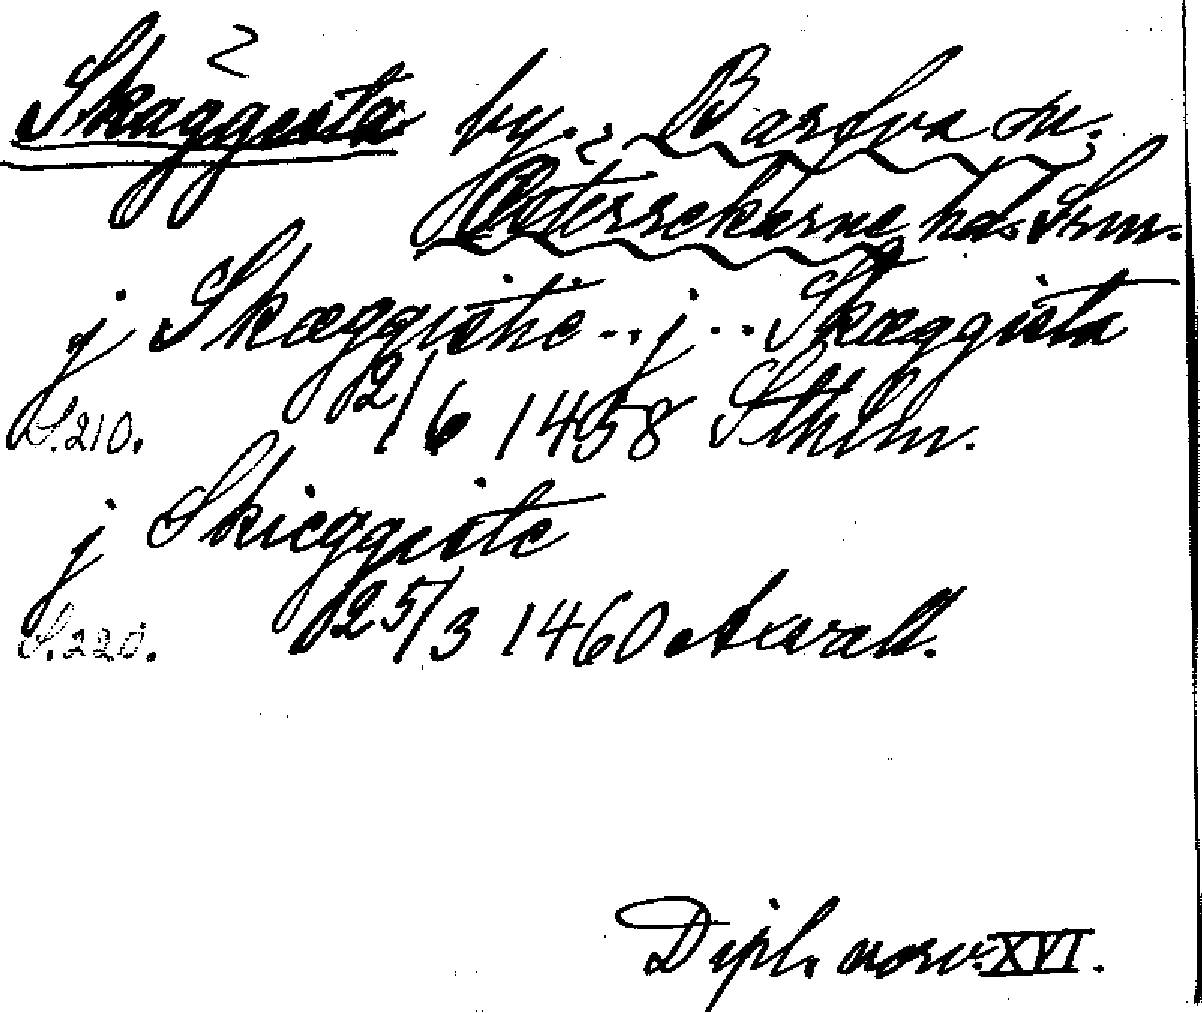 2
Skäggesta by. Barfva sn.
Österrekarne hd. Srm.
j Skæggisthe .. j .. Skæggista
S. 210. 12/6 1458 Sthlm.
j Skieggiste
S. 220. 25/3 1460
Dipl. norv. XVI.